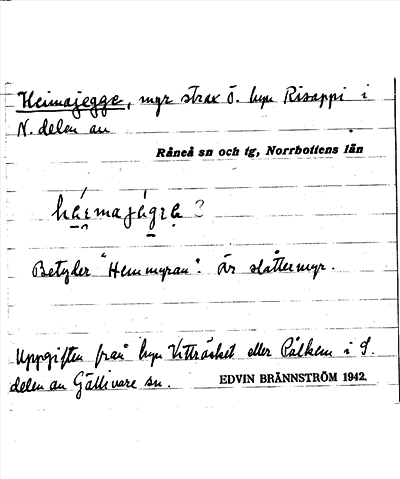 Heimajegge, myr strax ö. byn Risappi i
N. delen av
Råneå sn och tg, Norrbottens län
Betyder "Hemmyran". Är slåttermyr.
Uppgiften från byn Vitträsket eller Pålkem i S.
delen av Gällivare sn.
EDVIN BRÄNNSTRÖM 1942.